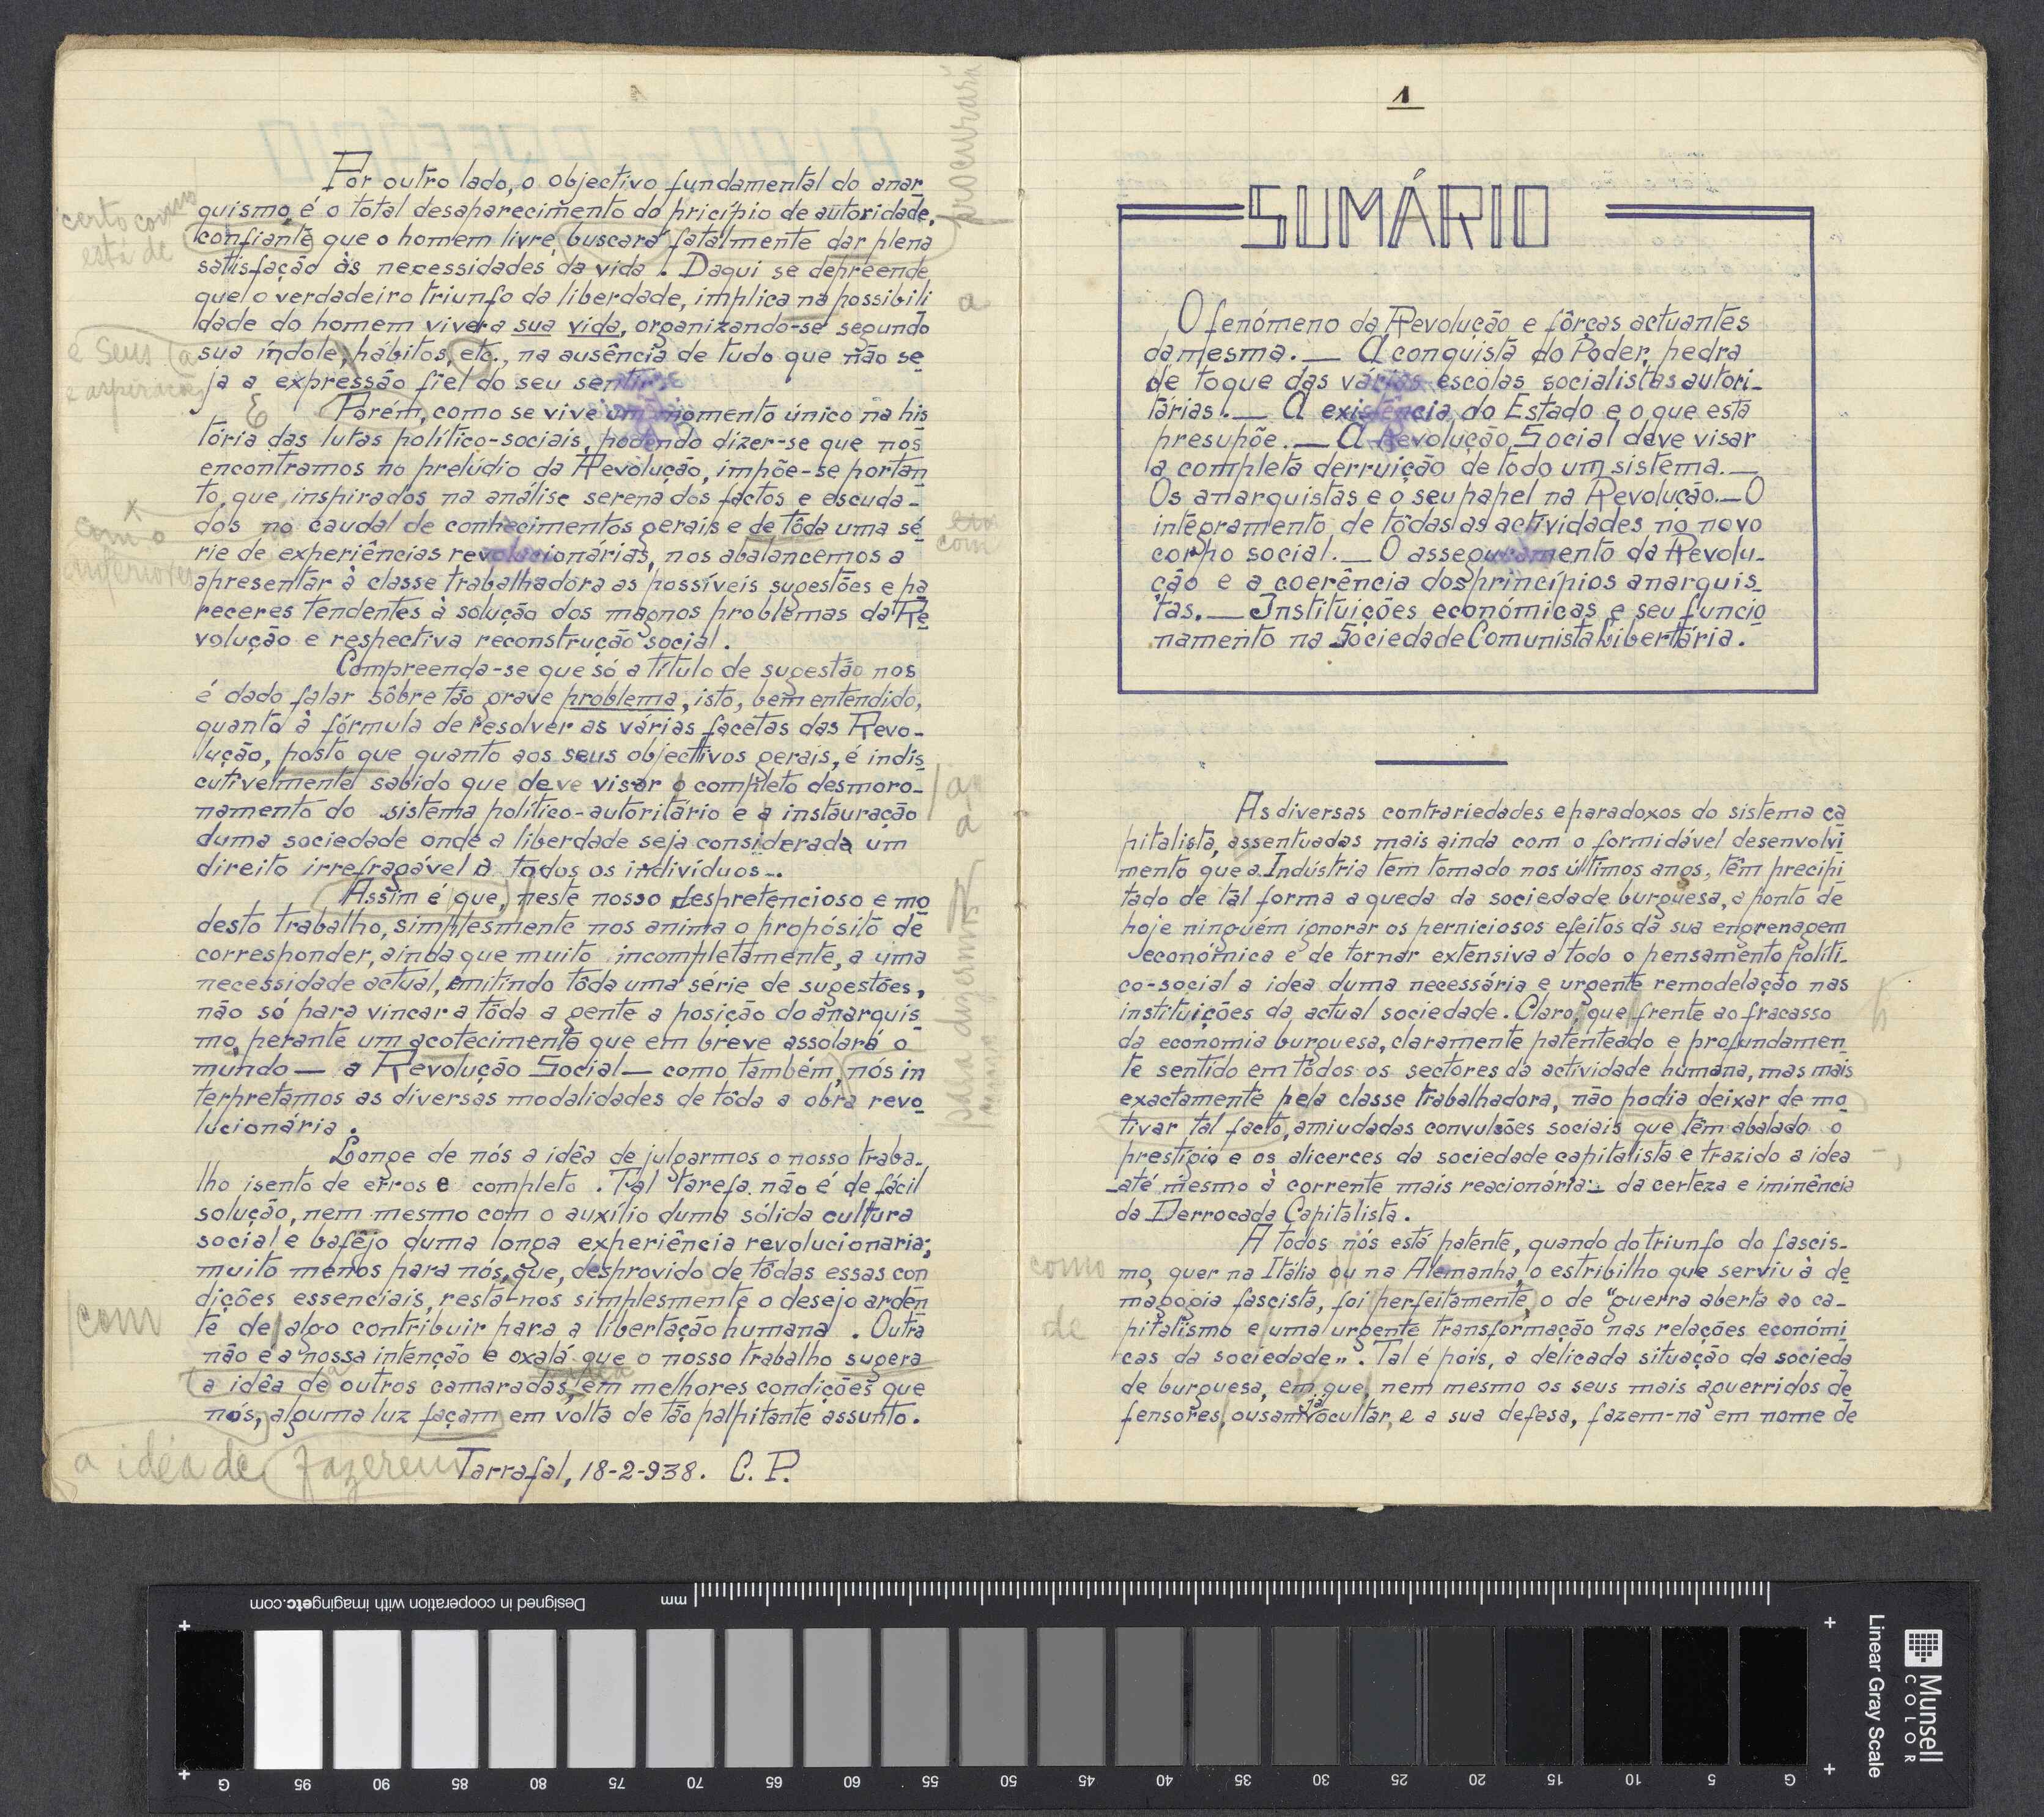 Por outro lado, o objectivo fundamental do anar
quismo, é o total desaparecimento do pricípio de autoridade,
confiante que o homem livre, buscará fatalmente dar plena
satisfação às necessidades da vida. Daqui se depreende,
que o verdadeiro triunfo da liberdade, implica na possibili
dade do homem viver a sua vida, organizando-se segundo
sua índole, hábitos, etc., na ausência de tudo que não se
ja a expressão fiel do seu sentir.
Porém, como se vive um momento único na his
tória das lutas político-sociais, podendo dizer-se que nos
encontramos no prelúdio da Revolução, impõe-se portan
to, que, inspirados na análise serena dos factos e escuda-
dos no caudal de conhecimentos gerais e de tôda uma sé
rie de experiências revolucionárias, nos abalancemos a
apresentar à classe trabalhadora as possíveis sugestões e pa
receres tendentes à solução dos magnos problemas da Re
volução e respectiva reconstrução social.
Compreenda-se que só a título de sugestão nos
é dado falar sôbre tão grave problema, isto, bem entendido,
quanto à fórmula de resolver as várias facetas das Revo-
lução, posto que quanto aos seus objectivos gerais, é indis
cutivelmente sabido que deve visar o completo desmoro-
namento do sistema político-autoritário e a instauração
duma sociedade onde a liberdade seja considerada um
direito irrefragável a todos os indivíduos.
Assim é que, neste nosso despretencioso e mo
desto trabalho, simplesmente nos anima o propósito de
corresponder, ainda que muito incompletamente, a uma
necessidade actual, emitindo tôda uma série de sugestões,
não só para vincar a tôda a gente a posição do anarquis
mo, perante um acotecimento que em breve assolará o
mundo — a Revolução Social — como também, nós in
terpretamos as diversas modalidades de tôda a obra revo
lucionária.
Longe de nós a idêa de julgarmos o nosso traba-
lho isento de erros e completo. Tal tarefa não é de fácil
solução, nem mesmo com o auxílio duma sólida cultura
social e bafêjo duma longa experiência revolucionaria;
muito menos para nós, que, desprovido de tôdas essas con
dições essenciais, resta-nos simplesmente o desejo arden
te de algo contribuir para a libertação humana. Outra
não é a nossa intenção e oxalá que o nosso trabalho sugera
a idêa de outros camaradas, em melhores condições que
nós, alguma luz façam em volta de tão palpitante assunto.
Tarrafal, 18-2-938. C. P.
certo como
está de
procurará
a
e seus
e aspirações
E
com o
com
a
a
para dizermos
com
a idéa de fazerem
1
SUMÁRIO
O fenómeno da Revolução e fôrças actuantes
da mesma. — A conquista do Poder, pedra
de toque das várias escolas socialistas autori-
tárias. — A existência do Estado e o que esta
presupõe. — A Revolução Social deve visar
a completa derruição de todo um sistema. —
Os anarquistas e o seu papel na Revolução. — O
integramento de tôdas as actividades no novo
corpo social. — O asseguramento da Revolu-
ção e a coerência dos princípios anarquis
tas. — Instituições económicas e seu funcio
namento na Sociedade Comunista Libertária.
As diversas contrariedades e paradoxos do sistema ca
pitalista, assentuadas mais ainda com o formidável desenvolvi
mento que a Indústria tem tomado nos últimos anos, têm precipi
tado de tal forma a queda da sociedade burguesa, a ponto de
hoje ninguém ignorar os perniciosos efeitos da sua engrenagem
económica e de tornar extensiva a todo o pensamento políti-
co-social a idea duma necessária e urgente remodelação nas
instituições da actual sociedade. Claro, que frente ao fracasso
da economia burguesa, claramente patenteado e profundamen
te sentido em tôdos os sectores da actividade humana, mas mais
exactamente pela classe trabalhadora, não podia deixar de mo
tivar tal facto, amiudadas convulsões sociais que têm abalado o
prestígio e os alicerces da sociedade capitalista e trazido a idea
-até mesmo à corrente mais reacionária- da certeza e iminência
da Derrocada Capitalista.
A todos nós está patente, quando do triunfo do fascis-
mo, quer na Itália ou na Alemanha, o estribilho que serviu à de
magogia fascista, foi perfeitamente, o de "guerra aberta ao ca-
pitalismo e uma urgente transformação nas relações económi
cas da sociedade". Tal é pois, a delicada situação da socieda
de burguesa, em que, nem mesmo os seus mais aguerridos de
fensores, ousam já ocultar, e a sua defesa, fazem-na em nome de
como
de
Designed in cooperation with imagingetc.com
mm
G 95 90 85 80 75 70 65 60 55 50 45 40 35 30 25 20 15 10 5 G
Linear Gray Scale
Munsell
COLOR